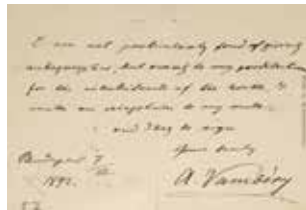 I am not particularly fond of giving
autographs, but owing to my predilection
for the inhabitants of the
make an exception to my rule
and I beg to sign
Yours truly
Budapest 7
1892.
A. Vambéry